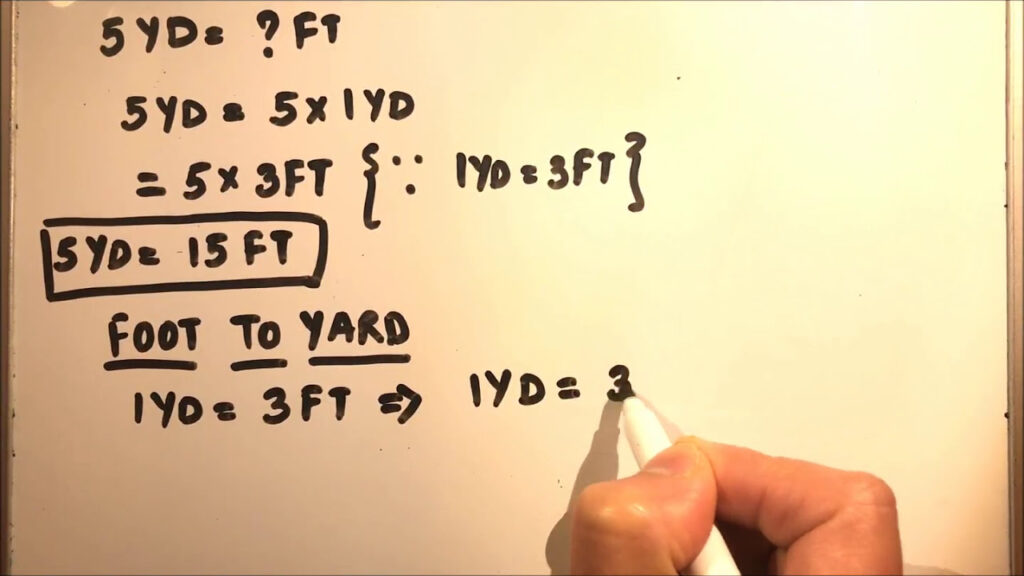 5YD = ? FT
5YD = 5 × 1YD
= 5 × 3FT { ∵ 1YD = 3FT }
5YD = 15 FT
FOOT TO YARD
1YD = 3FT ⇒ 1YD = 3